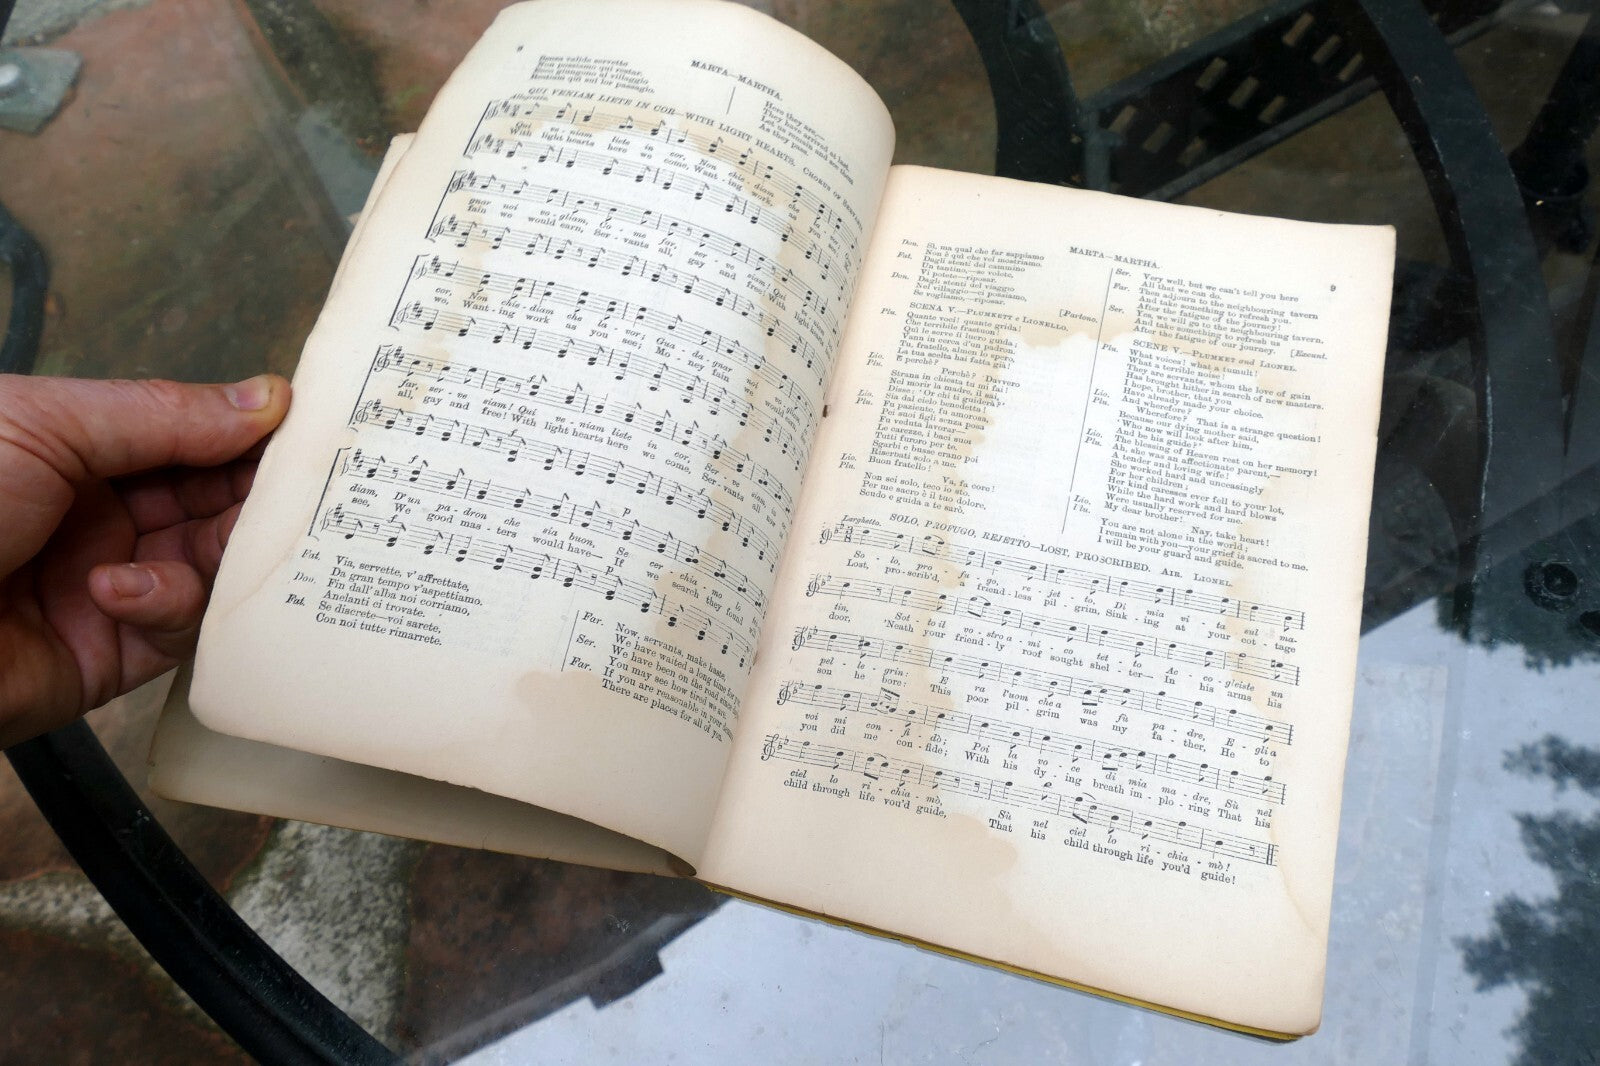 8
MARTA—MARTHA.
Senza valide servette
Non possiamo qui restar.
Ecco giungono al villaggio
Restiam qui sul lor passagio.
Here they are,—
They have arrived at last,
Let us remain and see them
As they pass.
QUI VENIAM LIETE IN COR—WITH LIGHT HEARTS. CHORUS OF
Allegretto.
Qui ve - niam liete in cor, Non chie - diam che la - vor;
With light hearts here we come, Want - ing work, as you see;
gnar noi vo - gliam, Co - me far, ser - ve siam! Qui
fain we would earn, Ser - vants all, gay and free! With light hearts
cor, Non chie - diam che la - vor; Gua - da - gnar noi
we, Want - ing work as you see; Mo - ney fain we would
far, ser - ve siam! Qui ve - niam liete in cor, Ser - ve siam,
all, gay and free! With light hearts here we come, Ser - vants all
diam, D'un pa - dron che sia buon, Se cer - chia - mo lo
see, We good mas - ters would have— If we search they found will
Fat. Via, servette, v' affrettate,
Da gran tempo v'aspettiamo.
Don. Fin dall' alba noi corriamo,
Anelanti ci trovate.
Fat. Se discrete—voi sarete,
Con noi tutte rimarrete.
Far. Now, servants, make haste,
We have waited a long time for
Ser. We have been on the road since
You may see how tired we are.
Far. If you are reasonable in your
There are places for all of you.
MARTA—MARTHA.
9
Don. Sì, ma qual che far sappiamo
Non è qui che vel mostriamo.
Fat. Dagli stenti del cammino
Un tantino,—se volete,
Vi potete—riposar.
Don. Dagli stenti del viaggio
Nel villaggio—ci possiamo,
Se vogliamo,—riposar.
[Partono.
SCENA V.—PLUMKETT e LIONELLO.
Plu. Quante voci! quante grida!
Che terribile frastuon!
Qui le serve il lucro guida;
Vann in cerca d'un padron.
Tu, fratello, almen lo spero,
La tua scelta hai fatta già!
Lio. E perchè?
Plu. Perchè? Davvero
Strana in chiesta tu mi fai!
Nel morir la madre, il sai,
Disse: 'Or chi ti guiderà?'
Lio. Sia dal cielo benedetta!
Plu. Fu paziente, fu amorosa,
Pei suoi figli senza posa
Fu veduta lavorar—
Le carezze, i baci suoi
Tutti furoro per te.
Sgarbi e busse erano poi
Riserbati solo a me.
Lio. Buon fratello!
Plu. Va, fa core!
Non sei solo, teco io sto.
Per me sacro è il tuo dolore,
Scudo e guida a te sarò.
Ser. Very well, but we can't tell you here
All that we can do.
Far. Then adjourn to the neighbouring tavern
And take something to refresh you.
After the fatigue of the journey!
Ser. Yes, we will go to the neighbouring tavern.
And take something to refresh us
After the fatigue of our journey.
[Exeunt.
SCENE V.—PLUMKET and LIONEL.
Plu. What voices! what a tumult!
What a terrible noise!
They are servants, whom the love of gain
Has brought hither in search of new masters.
I hope, brother, that you
Have already made your choice.
Lio. And wherefore?
Plu. Wherefore? That is a strange question!
Because our dying mother said,
'Who now will look after him,
And be his guide?'
Lio. The blessing of Heaven rest on her memory!
Plu. Ah, she was an affectionate parent,—
A tender and loving wife!
She worked hard and unceasingly
For her children;
Her kind caresses ever fell to your lot,
While the hard work and hard blows
Were usually reserved for me.
Lio. My dear brother!
Plu. Nay, take heart!
You are not alone in the world;
I remain with you—your grief is sacred to me.
I will be your guard and guide.
SOLO, PROFUGO, REJETTO—LOST, PROSCRIBED. AIR. LIONEL.
Larghetto.
So - lo, pro - fu - go, re - jet - to, Di mia vi - ta sul ma-
Lost, pro-scrib'd, a friend - less pil - grim, Sink - ing at your cot - tage
tin, Sot - to il vo - stro a - mi - co tet - to Ac - co - glieste un
door, 'Neath your friend - ly roof sought shel - ter— In his arms his
pel - le - grin: E ra l'uom che a me fù pa - dre, E - gli a
son he bore: This poor pil - grim was my fa - ther, He to
voi mi con - fi - dò; Poi la vo - ce di mia ma - dre, Sù nel
you did me con - fide; With his dy - ing breath im - plo - ring That his
ciel lo ri - chia - mò, Sù nel ciel lo ri - chia - mò!
child through life you'd guide, That his child through life you'd guide!